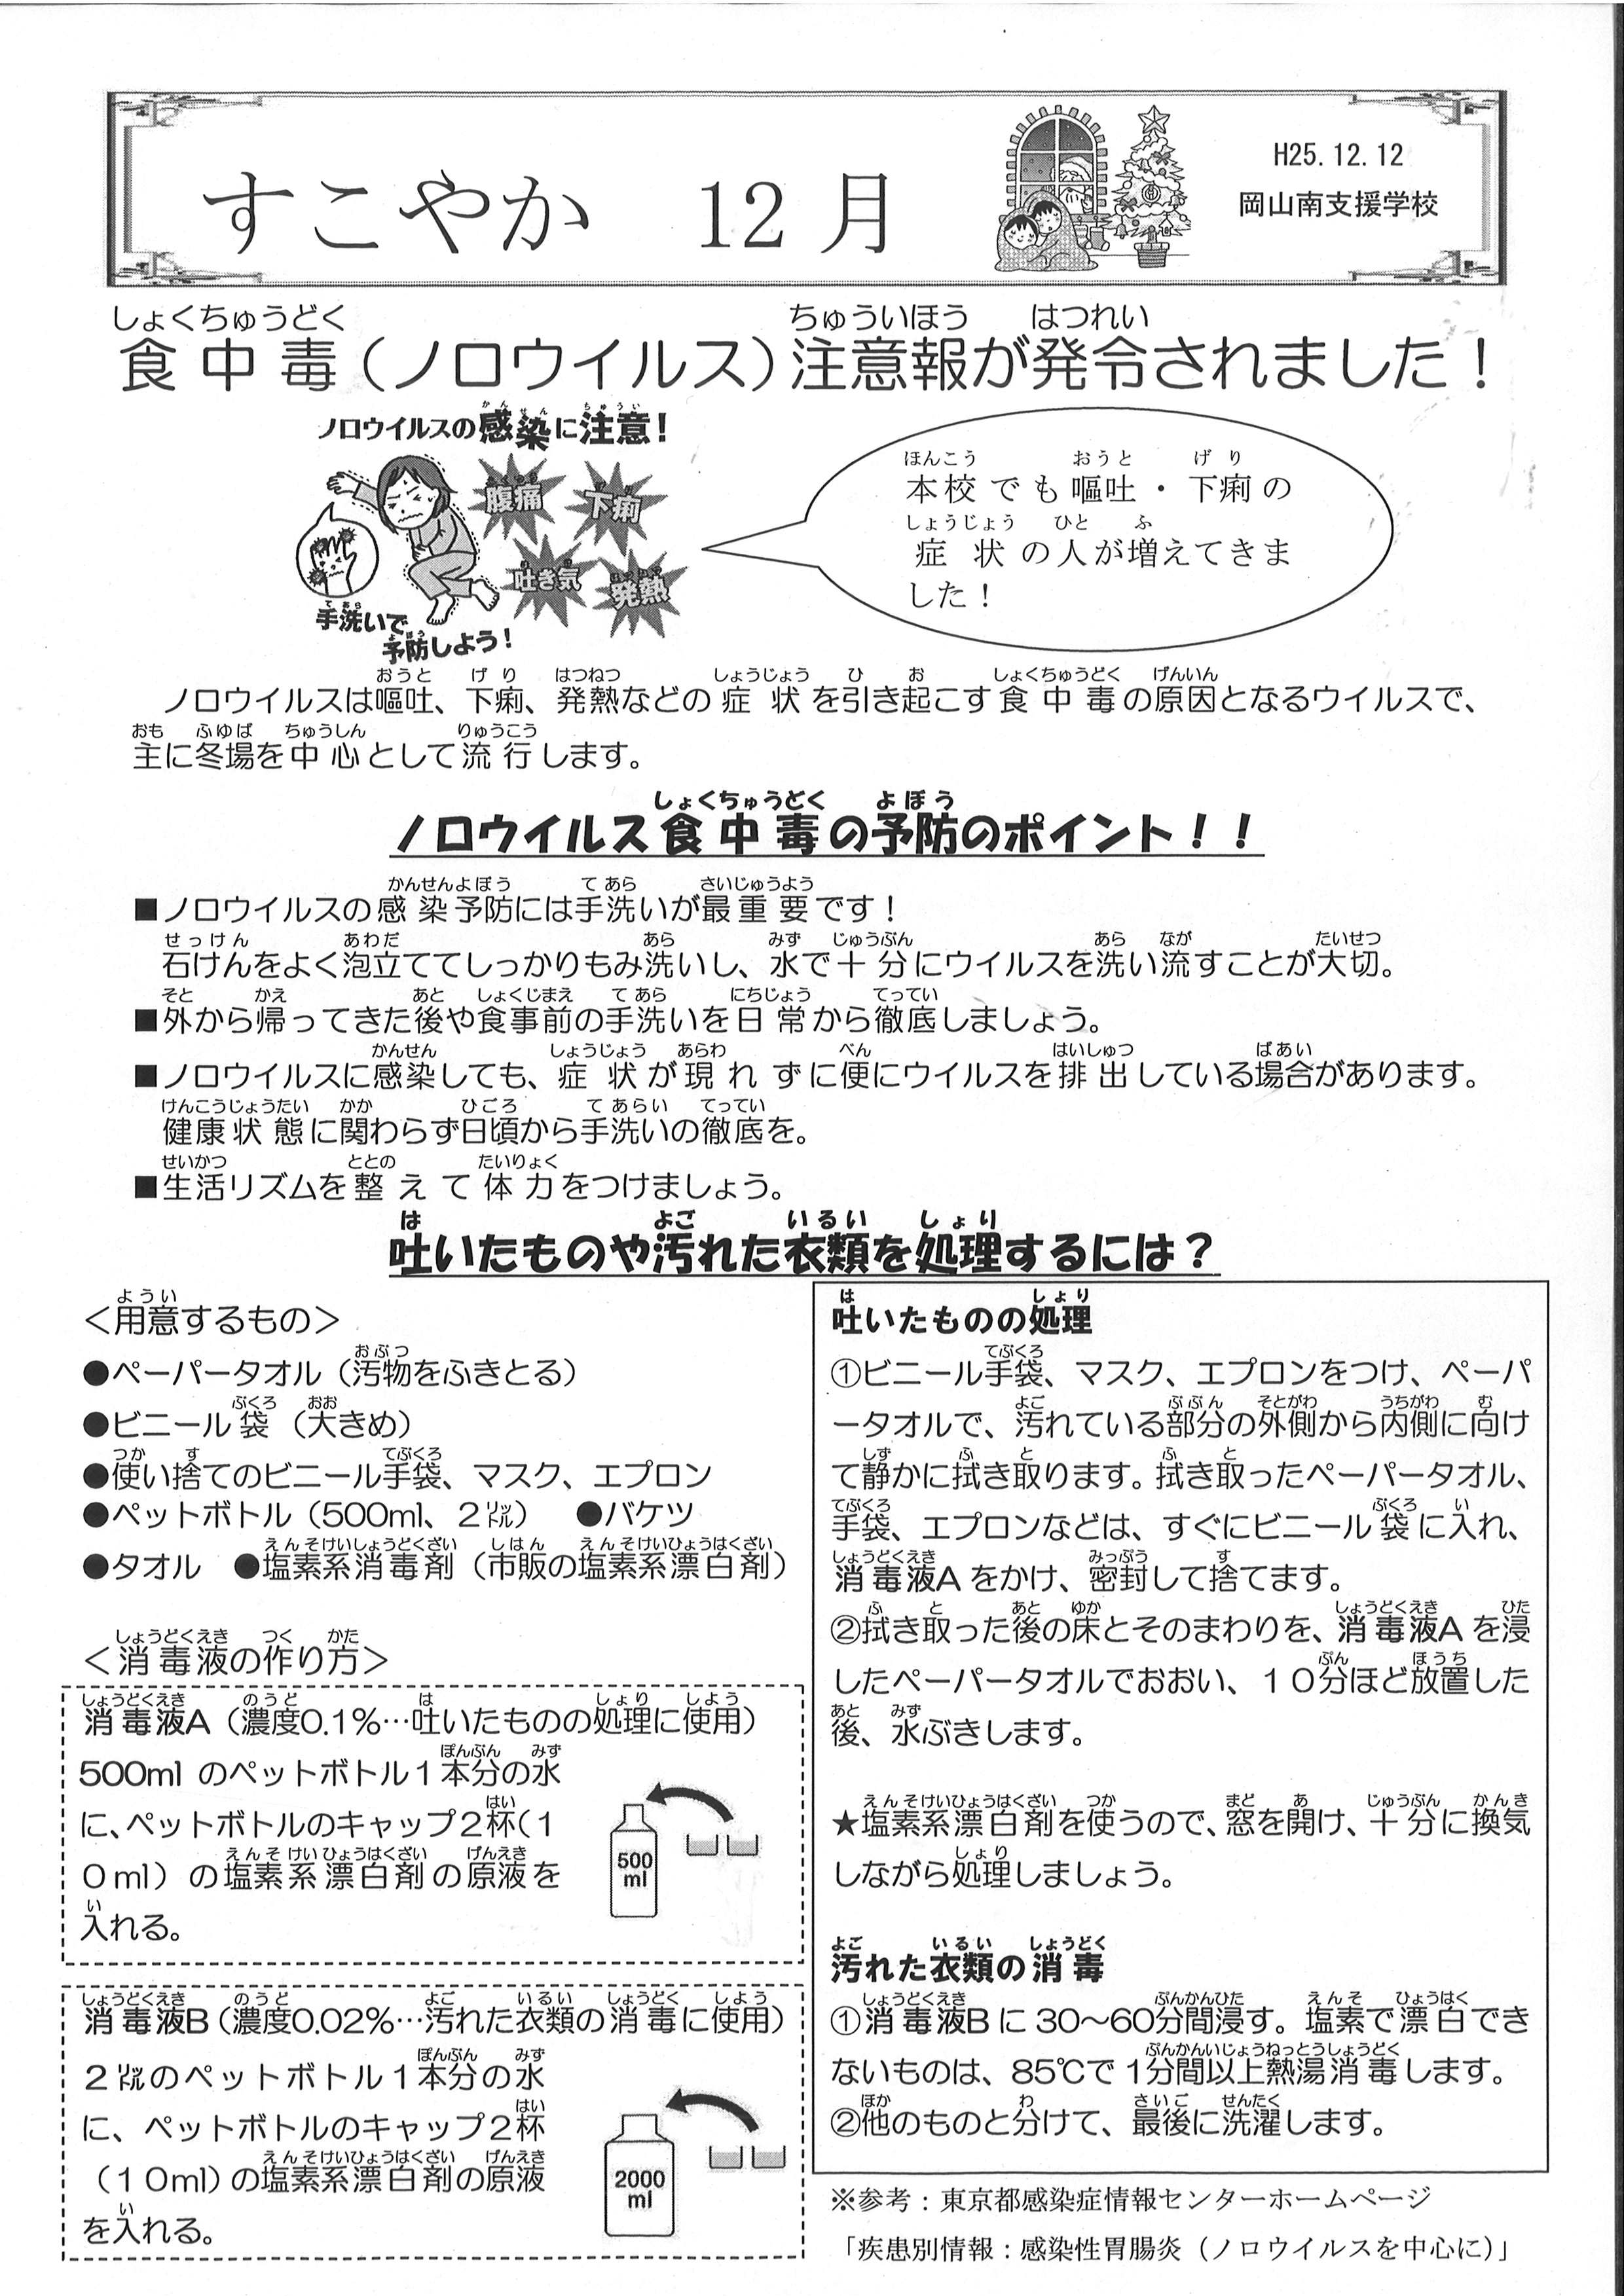 すこやか　12 月
H25.12.12
岡山南支援学校
食中毒（ノロウイルス）注意報が発令されました！
ノロウイルスの感染に注意！
腹痛
下痢
吐き気
発熱
手洗いで
予防しよう！
本校でも嘔吐・下痢の
症状の人が増えてきま
した！
ノロウイルスは嘔吐、下痢、発熱などの症状を引き起こす食中毒の原因となるウイルスで、
主に冬場を中心として流行します。
ノロウイルス食中毒の予防のポイント！！
■ノロウイルスの感染予防には手洗いが最重要です！
石けんをよく泡立ててしっかりもみ洗いし、水で十分にウイルスを洗い流すことが大切。
■外から帰ってきた後や食事前の手洗いを日常から徹底しましょう。
■ノロウイルスに感染しても、症状が現れずに便にウイルスを排出している場合があります。
健康状態に関わらず日頃から手洗いの徹底を。
■生活リズムを整えて体力をつけましょう。
吐いたものや汚れた衣類を処理するには？
＜用意するもの＞
●ペーパータオル（汚物をふきとる）
●ビニール袋（大きめ）
●使い捨てのビニール手袋、マスク、エプロン
●ペットボトル（500ml、2㍑）　●バケツ
●タオル　●塩素系消毒剤（市販の塩素系漂白剤）
＜消毒液の作り方＞
消毒液A（濃度0.1％…吐いたものの処理に使用）
500ml のペットボトル１本分の水
に、ペットボトルのキャップ２杯（１
０ml）の塩素系漂白剤の原液を
入れる。
500
ml
消毒液B（濃度0.02％…汚れた衣類の消毒に使用）
２㍑のペットボトル１本分の水
に、ペットボトルのキャップ２杯
（１０ml）の塩素系漂白剤の原液
を入れる。
2000
ml
吐いたものの処理
①ビニール手袋、マスク、エプロンをつけ、ペーパ
ータオルで、汚れている部分の外側から内側に向け
て静かに拭き取ります。拭き取ったペーパータオル、
手袋、エプロンなどは、すぐにビニール袋に入れ、
消毒液A をかけ、密封して捨てます。
②拭き取った後の床とそのまわりを、消毒液A を浸
したペーパータオルでおおい、１０分ほど放置した
後、水ぶきします。
★塩素系漂白剤を使うので、窓を開け、十分に換気
しながら処理しましょう。
汚れた衣類の消毒
①消毒液B に 30～60分間浸す。塩素で漂白でき
ないものは、85℃で 1分間以上熱湯消毒します。
②他のものと分けて、最後に洗濯します。
※参考：東京都感染症情報センターホームページ
「疾患別情報：感染性胃腸炎（ノロウイルスを中心に）」